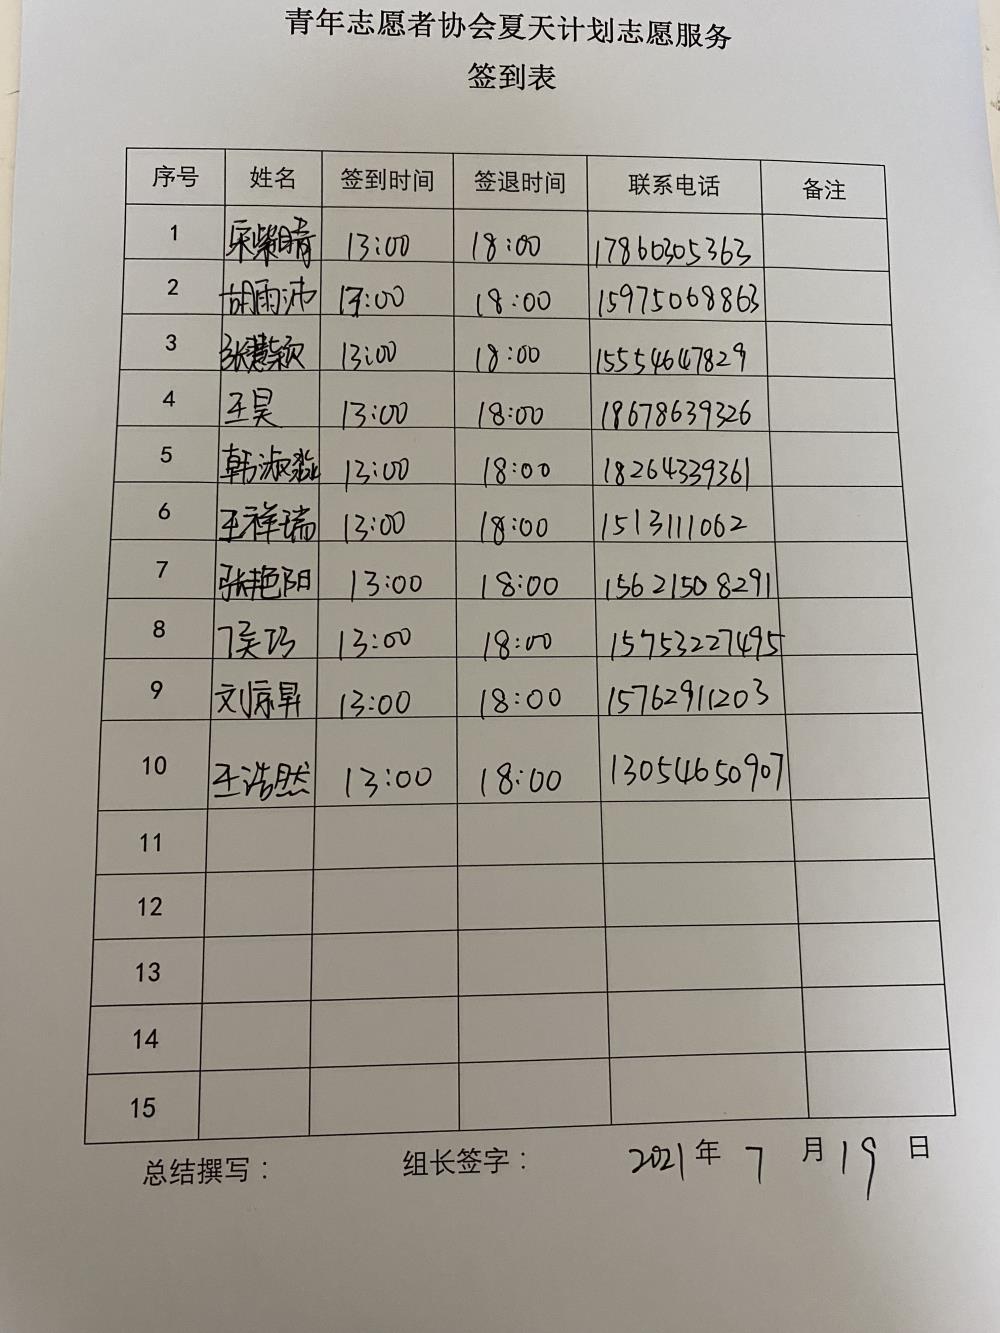 青年志愿者协会夏天计划志愿服务
签到表
序号 姓名 签到时间 签退时间 联系电话 备注
1 宋紫晴 13:00 18:00 17860305363
2 胡雨沛 13:00 18:00 15975068863
3 张慧颖 13:00 18:00 15554647829
4 王昊 13:00 18:00 18678639326
5 韩淑淼 13:00 18:00 18264339361
6 王祥瑞 13:00 18:00 1513111062
7 张艳阳 13:00 18:00 15621508291
8 侯巧 13:00 18:00 15753227495
9 刘京昇 13:00 18:00 15762911203
10 王浩然 13:00 18:00 13054650907
11
12
13
14
15
总结撰写： 组长签字： 2021年 7 月 19 日